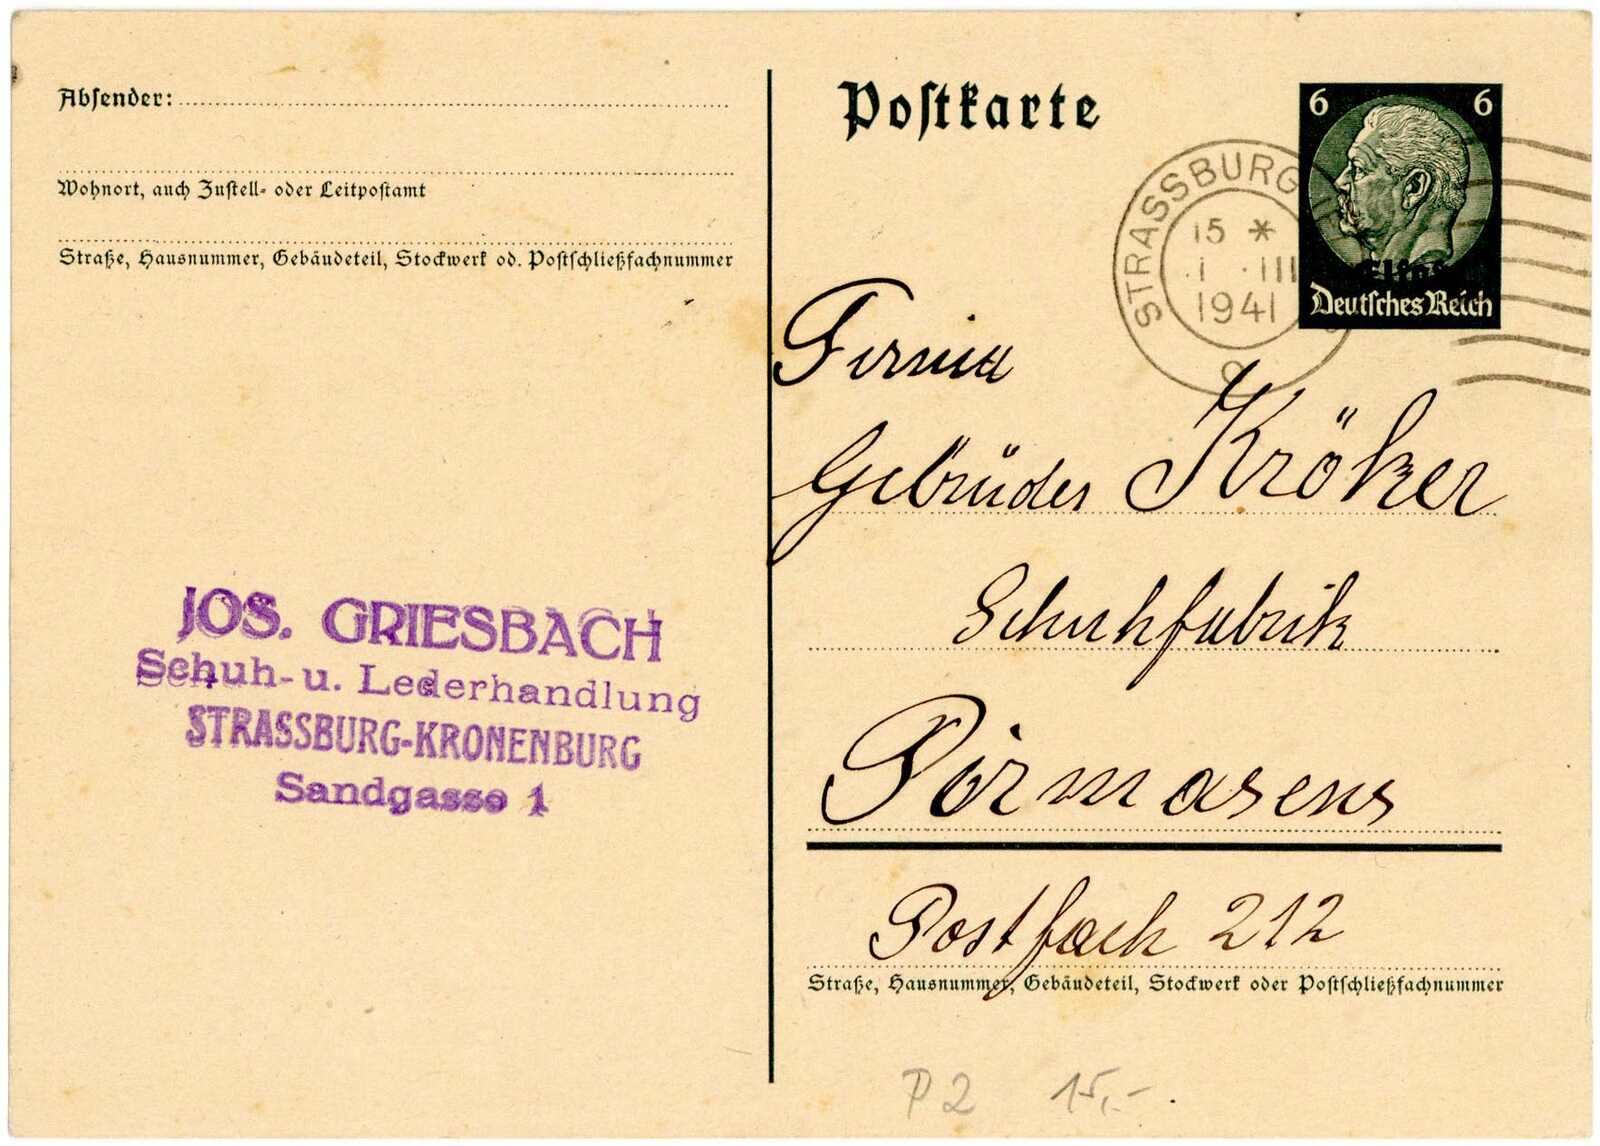 Absender:
Wohnort, auch Zustell- oder Leitpostamt
Straße, Hausnummer, Gebäudeteil, Stockwerk od. Postschließfachnummer
JOS. GRIESBACH
Schuh- u. Lederhandlung
STRASSBURG-KRONENBURG
Sandgasse 1
Postkarte
6 6
Elsaß
Deutsches Reich
STRASSBURG
15 *
1 · III
1941
Firma
Gebrüder Kröker
Schuhfabrik
Pirmasens
Postfach 212
Straße, Hausnummer, Gebäudeteil, Stockwerk oder Postschließfachnummer
P2 15,-